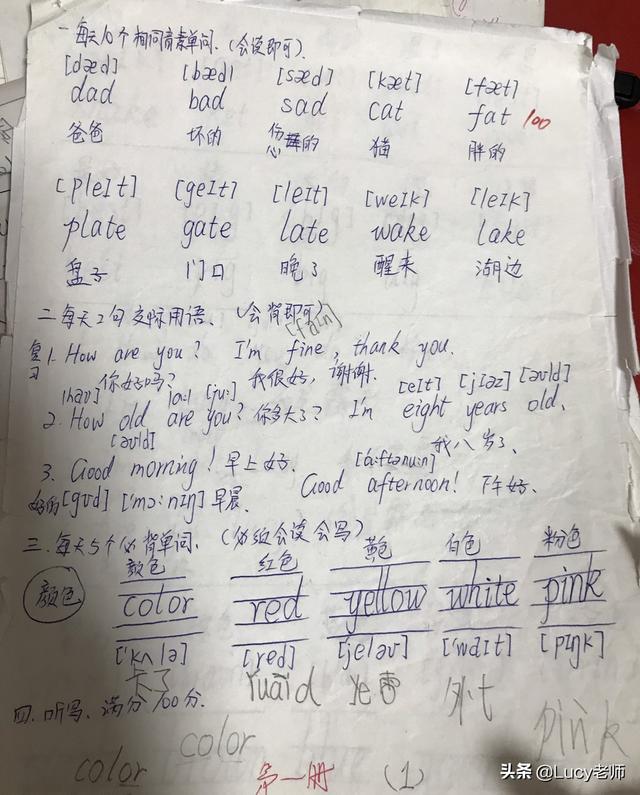 一.每天10个相同音素单词.(会读即可).
[dæd] [bæd] [sæd] [kæt] [fæt]
dad bad sad cat fat 100
爸爸 坏的 伤心的 猫 胖的
[pleIt] [geIt] [leIt] [weIk] [leIk]
plate gate late wake lake
盘子 门口 晚了 醒来 湖边
二.每天2句交际用语、(会背即可)
[faIn]
复习 1. How are you? I'm fine, thank you.
你好吗? 我很好,谢谢.
[hav] [a:] [ju:] [eIt] [jIəz] [əʊld]
2. How old are you? 你多大了? I'm eight years old.
[əʊld] 我八岁了.
3. Good morning! 早上好. [ɑ:ftənu:n]
Good afternoon! 下午好.
好的 [gʊd] ['mɔ:nIŋ] 早晨.
三.每天5个必背单词.(必须会读会写)
颜色 红色 黄色 白色 粉色
颜色 color red yellow white pink
['kʌlə] [red] [jeləʊ] ['waIt] [pIŋk]
卡了 ruāi d ye 外t
四.听写、满分100分.
pink
color color
第一册 (1)
头条 @Lucy老师